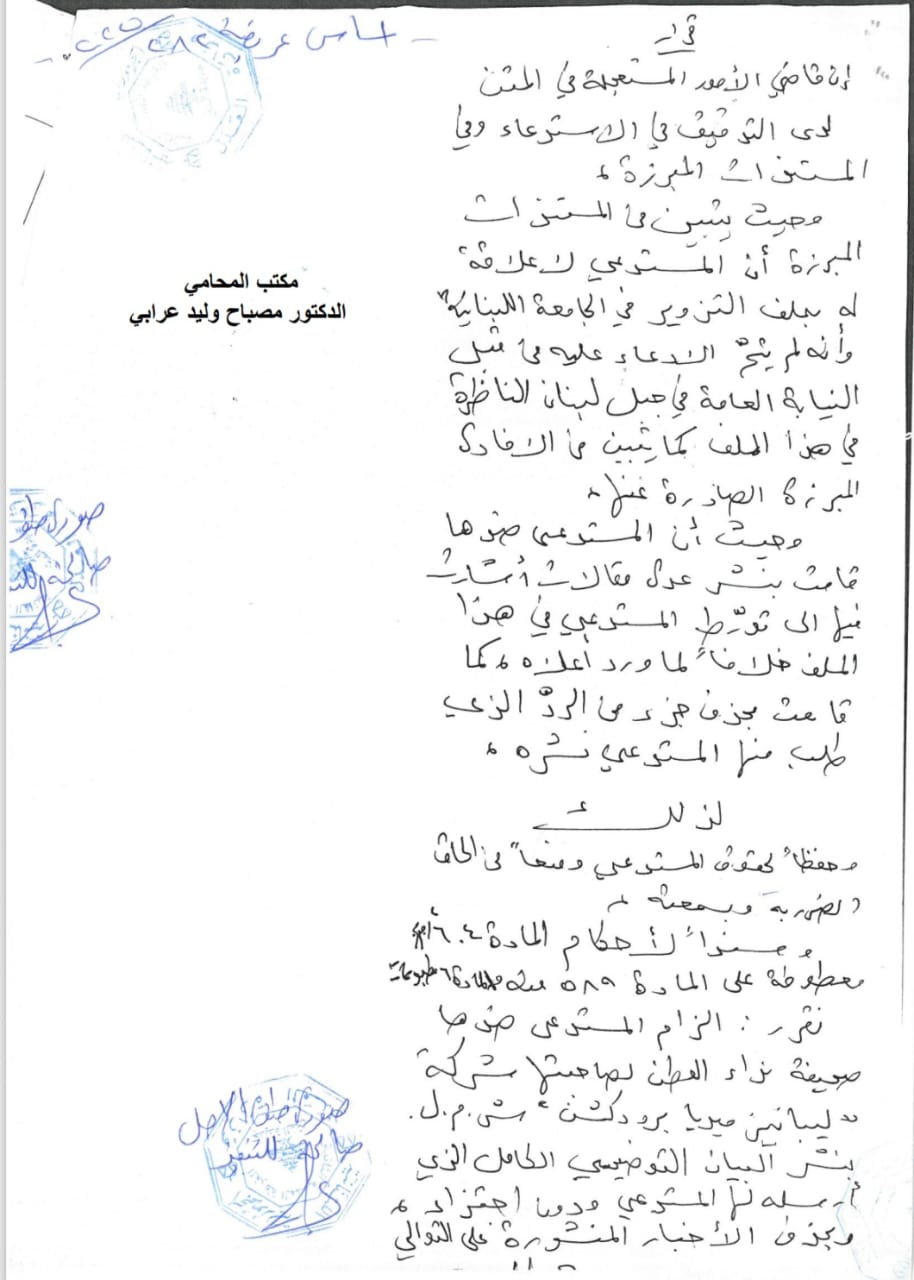 اساس عريضة ٢٨٢ / ٢٢٥
قرار
إن قاضي الأمور المستعجلة في المتن
لدى التدقيق في الاستدعاء وفي
المستندات المبرزة،
وحيث يتبين من المستندات
المبرزة أن المستدعي لا علاقة
له بملف التزوير في الجامعة اللبنانية
وأنه لم يتمّ الادعاء عليه من قبل
النيابة العامة في جبل لبنان الناظرة
في هذا الملف كما يتبين من الافادة
المبرزة الصادرة عنها،
وحيث أن المستدعى ضدها
قامت بنشر عدة مقالات أشارت
فيها الى تورّط المستدعي في هذا
الملف خلافاً لما ورد أعلاه، كما
قامت بحذف جزء من الردّ الذي
طلب منها المستدعي نشره،
لذلك
وحفظاً لحقوق المستدعي ومنعاً من الحاق
الضرر به وبسمعته،
وسنداً لأحكام المادة ٦٠٤ أ.م.م
معطوفة على المادة ٥٨٩ منه والمادة ٦ مطبوعات
نقرر: الزام المستدعى ضدها
صحيفة نداء الوطن لصاحبتها شركة
"ليبانيز ميديا برودكشن" ش.م.ل.
بنشر البيان التوضيحي الكامل الذي
أرسله لها المستدعي ودون اجتزاء،
وبحذف الأخبار المنشورة على التوالي
مكتب المحامي
الدكتور مصباح وليد عرابي
صورة طبق
صالحة للتنفيذ
صورة طبق الاصل
صالحة للتنفيذ